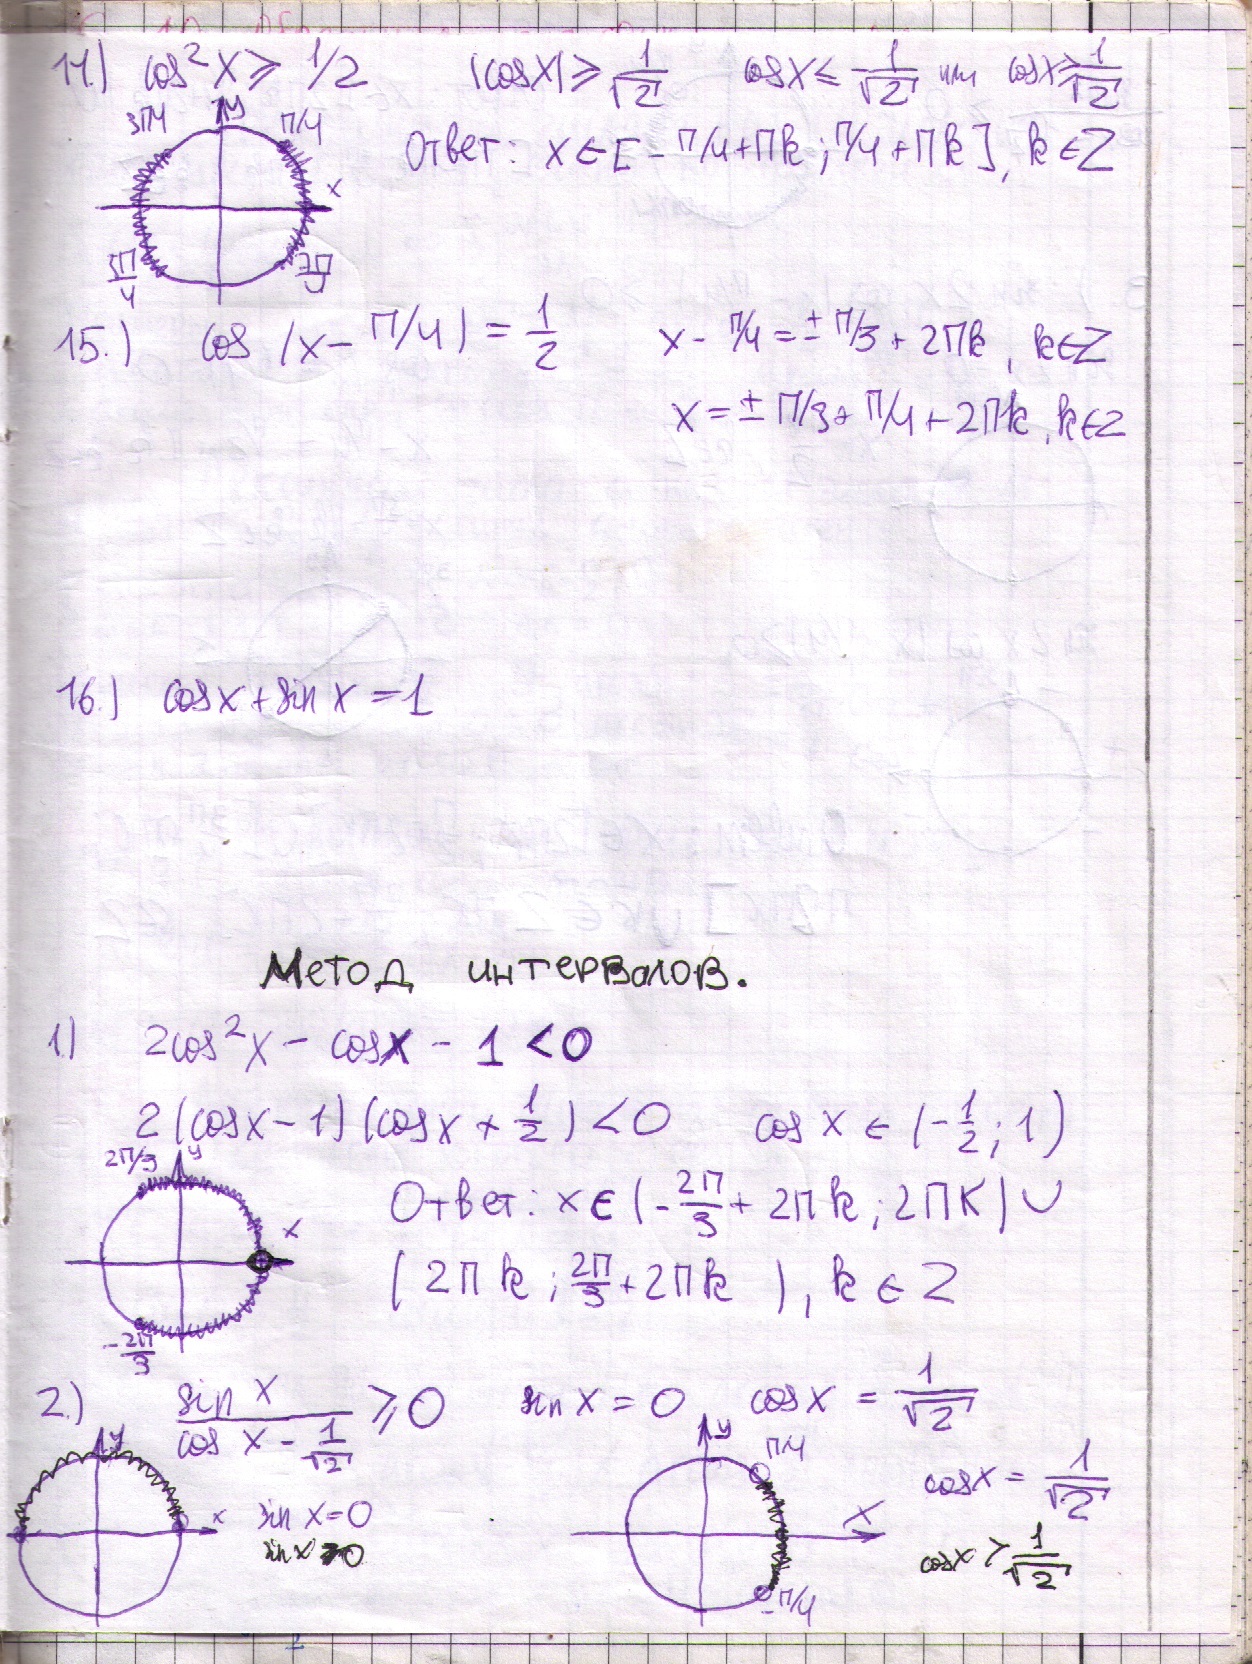 14.) cos²x ≥ 1/2 |cosx| ≥ 1/√2 cosx ≤ -1/√2 или cosx ≥ 1/√2
3π/4 y π/4
Ответ: x ∈ [-π/4+πk; π/4+πk], k ∈ Z
x
3π/4
15.) cos(x-π/4) = 1/2 x - π/4 = ± π/3 + 2πk, k∈Z
x = ± π/3 + π/4 + 2πk, k∈Z
16.) cosx + sinx = 1
Метод интервалов.
1) 2cos²x - cosx - 1 < 0
2(cosx-1)(cosx + 1/2) < 0 cosx ∈ (-1/2; 1)
2π/3 y
Ответ: x ∈ (-2π/3 + 2πk; 2πk) ∪
x
(2πk; 2π/3 + 2πk), k ∈ Z
-2π/3
2.) sin x / (cos x - 1/√2) ≥ 0 sin x = 0 cosx = 1/√2
y y π/4
cosx = 1/√2
x sin x = 0 x
cosx > 1/√2
-π/4